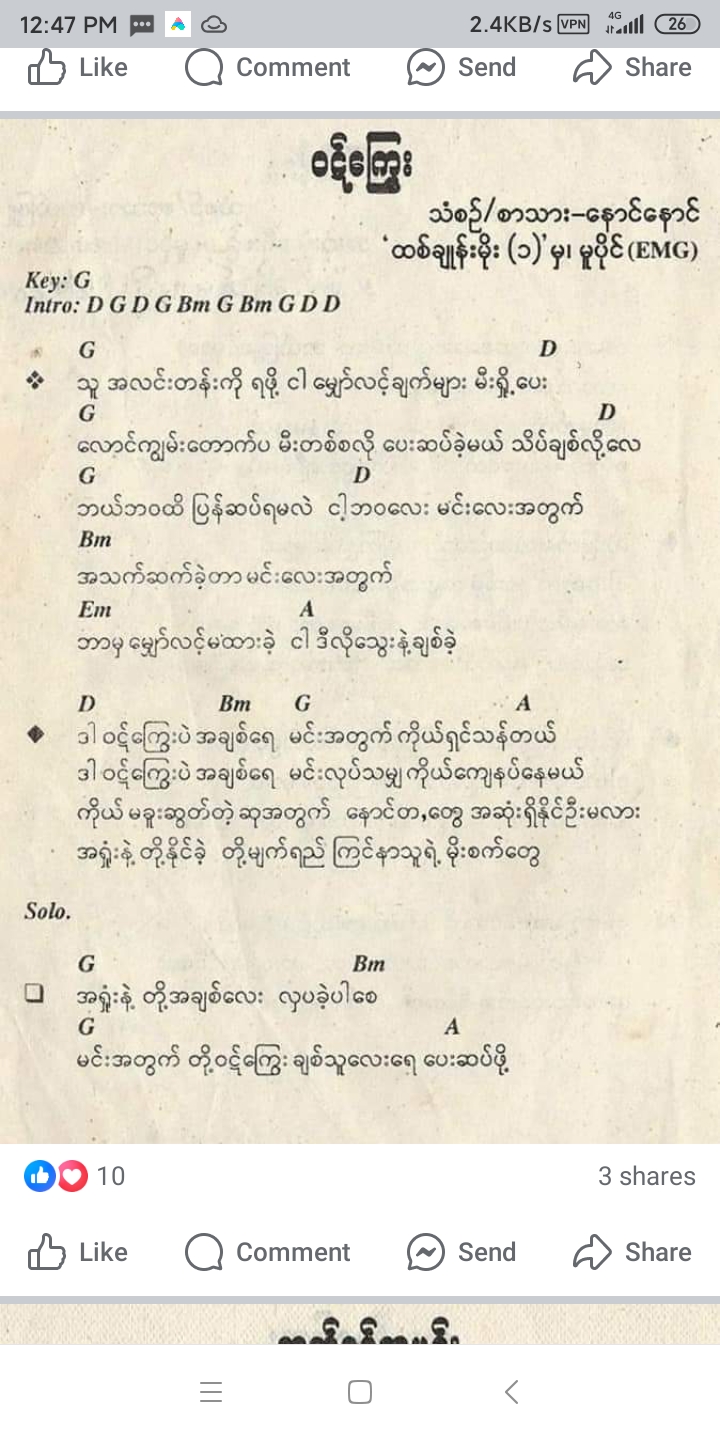 12:47 PM 2.4KB/s VPN 4G 26
Like Comment Send Share
ဝဋ်ကြွေး
သံစဉ်/စာသား-နောင်နောင်
‘ထစ်ချုန်းမိုး (၁)’ မှ၊ မူပိုင် (EMG)
Key: G
Intro: D G D G Bm G Bm G D D
G D
သူ အလင်းတန်းကို ရဖို့ ငါ မျှော်လင့်ချက်များ မီးရှို့ပေး
G D
လောင်ကျွမ်းတောက်ပ မီးတစ်စလို ပေးဆပ်ခဲ့မယ် သိပ်ချစ်လို့လေ
G D
ဘယ်ဘဝထိ ပြန်ဆပ်ရမလဲ ငါ့ဘဝလေး မင်းလေးအတွက်
Bm
အသက်ဆက်ခဲ့တာ မင်းလေးအတွက်
Em A
ဘာမှ မျှော်လင့်မထားခဲ့ ငါ ဒီလိုသွေးနဲ့ချစ်ခဲ့
D Bm G A
ဒါ ဝဋ်ကြွေးပဲ အချစ်ရေ မင်းအတွက် ကိုယ်ရှင်သန်တယ်
ဒါ ဝဋ်ကြွေးပဲ အချစ်ရေ မင်းလုပ်သမျှ ကိုယ်ကျေနပ်နေမယ်
ကိုယ် မခူးဆွတ်တဲ့ ဆုအတွက် နောင်တ,တွေ အဆုံးရှိနိုင်ဦးမလား
အရှုံးနဲ့ တို့နိုင်ခဲ့ တို့မျက်ရည် ကြင်နာသူရဲ့ မိုးစက်တွေ
Solo.
G Bm
အရှုံးနဲ့ တို့အချစ်လေး လှပခဲ့ပါစေ
G A
မင်းအတွက် တို့ဝဋ်ကြွေး ချစ်သူလေးရေ ပေးဆပ်ဖို့
10 3 shares
Like Comment Send Share